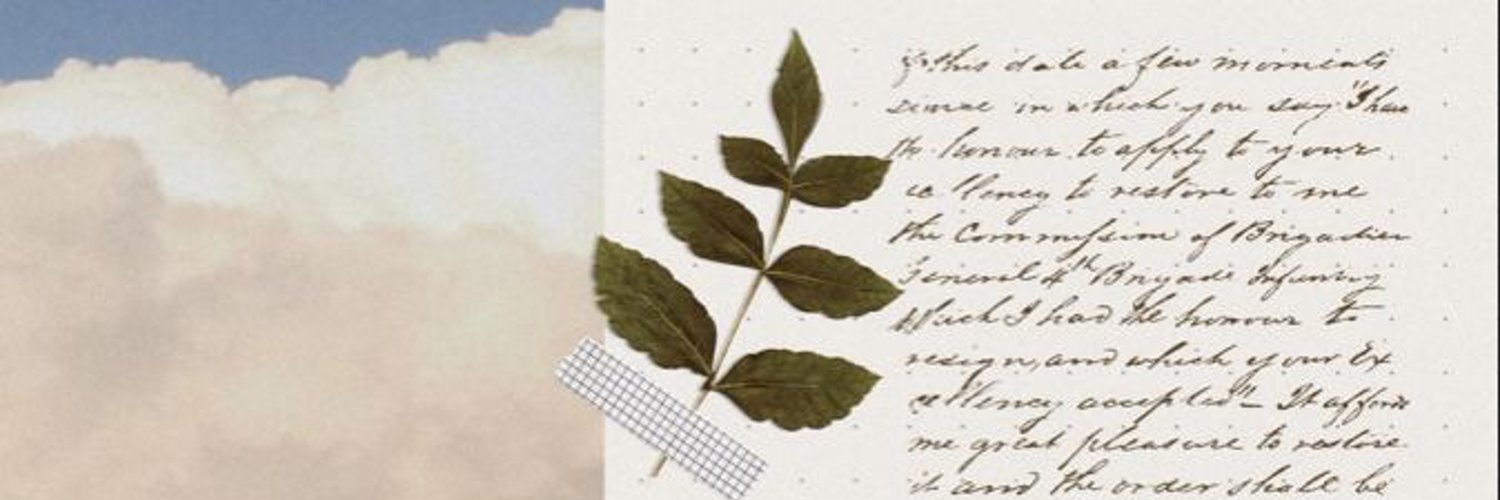 of this date a few moments
since in which you say "I have
the honour to apply to your
cellency to restore to me
the Commission of Brigadier
General 4th Brigade Infantry
Which I had the honour to
resign, and which your Ex
cellency accepted" – It affords
me great pleasure to restore
it and the order shall be